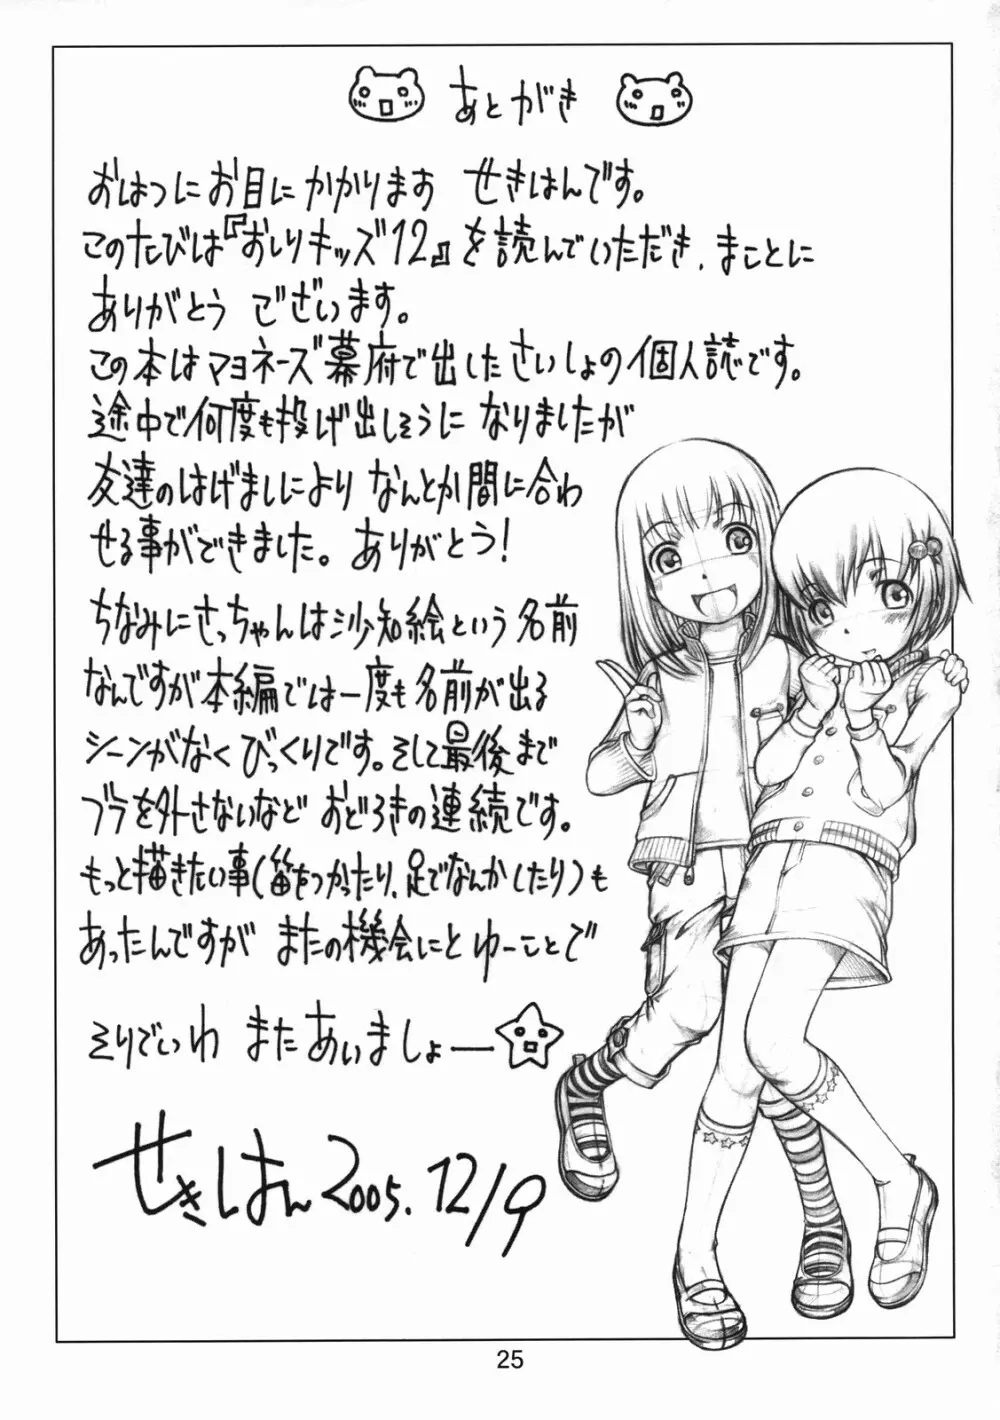 あとがき
おはつにお目にかかります せきはんです。
このたびは『おしりキッズ12』を読んでいただき、まことに
ありがとう ございます。
この本はマヨネーズ幕府で出したさいしょの個人誌です。
途中で何度も投げ出しそうに なりましたが
友達のはげましにより なんとか間に合わ
せる事ができました。 ありがとう!
ちなみにさっちゃんは沙知絵という名前
なんですが本編では一度も名前が出る
シーンがなく びっくりです。そして最後まで
ブラを外さないなど おどろきの連続です。
もっと描きたい事(笛をつかったり、足でなんかしたり)も
あったんですが またの機会にとゆーことで
そりでいわ またあいましょー
せきはん 2005.12/9
25